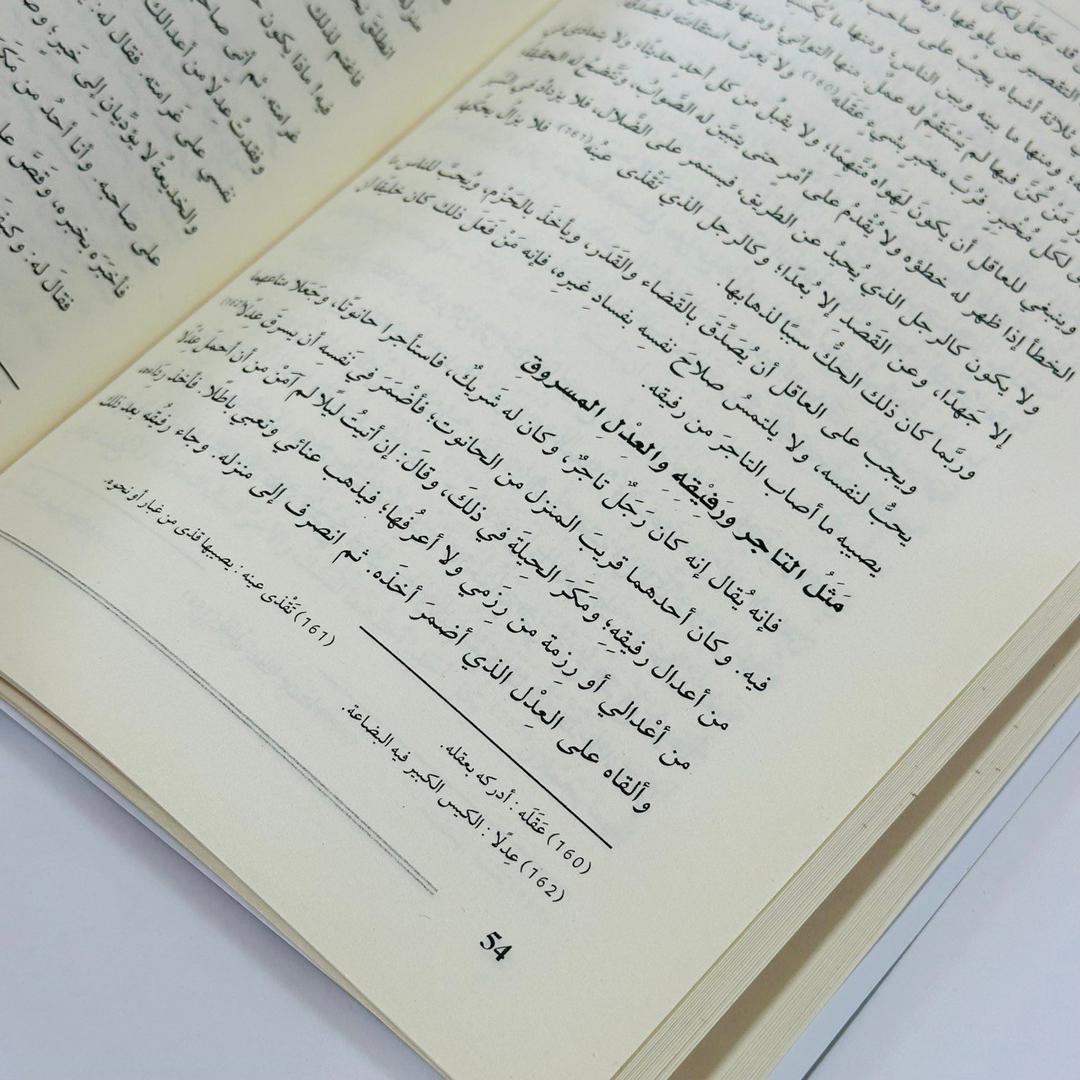 قد جعل لكل
التقصير عن بلوغها
ثلاثة أشياء يجب على صاحب
ومنها ما بينه وبين الناس، ومنها ما
مَنْ كُنَّ فيها لم يَسْتَقِمْ له عملٌ. منها التواني، ومنها
لكلِّ مُخْبِرٍ. فرُبَّ مخبر بشيءٍ عَقَلَه (160) ولا يعرف استقامته
وينبغي للعاقل أن يكونَ لِهَواه مُتَّهِمًا، ولا يقبلُ من كلِّ أحدٍ حديثًا، ولا يتمادى في
الخطأ إذا ظهر له خطؤه ولا يُقْدِمُ على أمْرٍ حتى يتبيَّن له الصَّوابُ، وتتَّضحُ له الحقيقةُ
ولا يكون كالرجل الذي يُحيدُ عن الطريق، فيستمر على الضَّلال، فلا يزدادُ في السير
إلا جَهدًا، وعن القَصْدِ إلا بُعدًا؛ وكالرجل الذي تَقْذَى عينُه (161) فلا يزالُ يحكها،
وربَّما كان ذلك الحكُّ سببًا لذهابها.
ويجب على العاقل أن يُصَدِّقَ بالقَضاء والقَدَر، ويأخذَ بالحَزْمِ، ويُحبَّ للناس ما
يحبُّ لنفسه، ولا يلتمسُ صلاحَ نفسِهِ بفسادِ غيرِه، فإنه مَنْ فَعَلَ ذلك كان خليقًا أن
يصيبه ما أصاب التاجرَ من رفيقه.
مَثَلُ التاجر ورَفِيْقِهِ والعِدْلِ المسروق
فإنه يُقال إنه كان رَجَلٌ تاجرٌ، وكان له شَريكٌ، فاستأجرا حانوتًا، وجَعَلا متاعهما
فيه. وكان أحدهما قريبَ المنزل من الحانوت، فأضْمَرَ في نَفسِه أن يسرقَ عِدلًا (162)
من أعدال رفيقِهِ؛ ومَكَرَ الحِيلةَ في ذلكَ، وقالَ: إن أتيتُ ليْلًا لم آمَنْ من أن أحملَ عِدْلًا
من أعْدالي أو رِزمة من رِزَمِي ولا أعرفُها؛ فيذهب عنائي وتعبي باطلًا. فأخذ رداءه
وألقاه على العِدْل الذي أضمرَ أخذَه. ثم انصرف إلى منزله. وجاء رفيقُه بعد ذلك
(160) عَقَلَه : أدركه بعقله.
(161) تَقْذى عينه : يصيبها قذى من غبار أو نحوه.
(162) عِدلًا : الكيس الكبير فيه البضاعة.
54
انطلق
فاغتم لذلك
فيه! ماذا يكون
غرامته. ثم أتى صاحبه
وفقدتُ عدلًا من أعدالك
نفسي على غرامته. فقال له:
والخديعة لا يؤدِّيان إلى خَير؛
على صاحبه. وأنا أحدُ من مَكَر
فأخبَره بخبره، وقصَّ
فقال له: وكيف